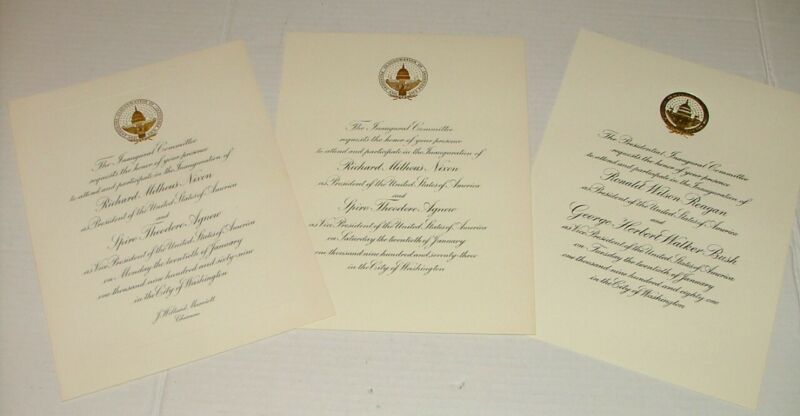 The Inaugural Committee
requests the honor of your presence
to attend and participate in the Inauguration of
Richard Milhous Nixon
as President of the United States of America
and
Spiro Theodore Agnew
as Vice President of the United States of America
on Monday the twentieth of January
one thousand nine hundred and sixty-nine
in the City of Washington
J. Willard Marriott
Chairman
The Inaugural Committee
requests the honor of your presence
to attend and participate in the Inauguration of
Richard Milhous Nixon
as President of the United States of America
and
Spiro Theodore Agnew
as Vice President of the United States of America
on Saturday the twentieth of January
one thousand nine hundred and seventy-three
in the City of Washington
The Presidential Inaugural Committee
requests the honor of your presence
to attend and participate in the Inauguration of
Ronald Wilson Reagan
as President of the United States of America
and
George Herbert Walker Bush
as Vice President of the United States of America
on Tuesday the twentieth of January
one thousand nine hundred and eighty one
in the City of Washington